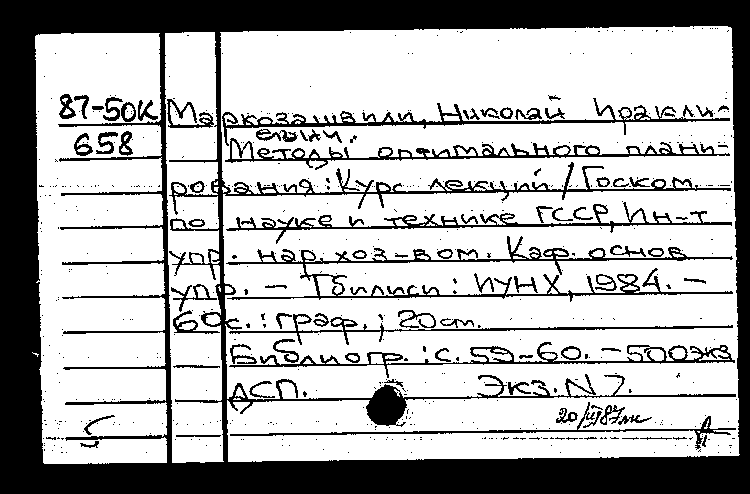 87-50К Маркозашвили, Николай Иракли-
658 евич.
Методы оптимального плани-
рования: Курс лекций / Госком.
по науке и технике ГССР, Ин-т
упр. нар. хоз-вом. Каф. основ
упр. – Тбилиси: ИУНХ, 1984. –
60с.: граф.; 20см.
Библиогр.: с. 59-60. – 500экз
ДСП. Экз. N 7.